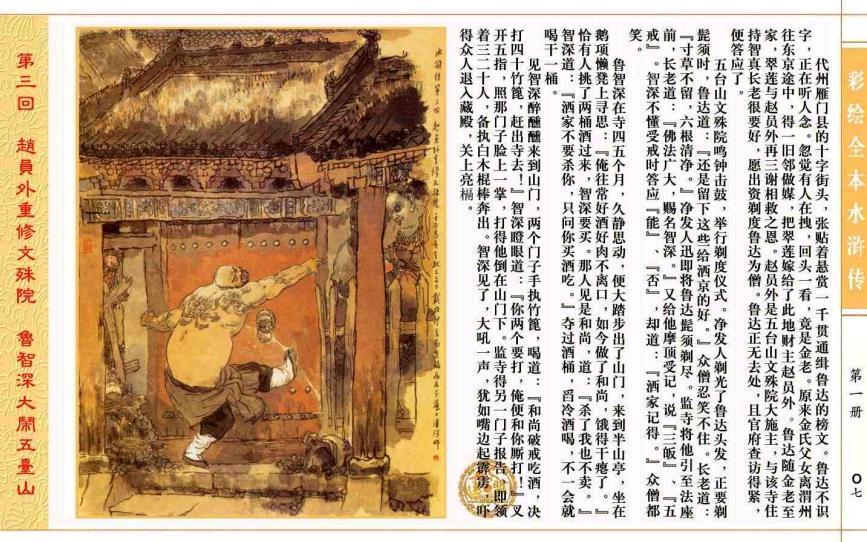 彩绘全本水浒传
第一册
〇七
代州雁门县的十字街头，张贴着悬赏一千贯通缉鲁达的榜文。鲁达不识
字，正在听人念。忽觉有人在拽，回头一看，竟是金老。原来金氏父女离渭州
往东京途中，得一旧邻做媒，把翠莲嫁给了此地财主赵员外。鲁达随金老至
家，翠莲与赵员外再三谢相救之恩。赵员外是五台山文殊院大施主，与该寺住
持智真长老很要好，愿出资剃度鲁达为僧。鲁达正无去处，且官府查访得紧，
便答应了。
五台山文殊院鸣钟击鼓，举行剃度仪式。净发人剃光了鲁达头发，正要剃
髭须时，鲁达道：『还是留下这些给洒京的好。』众僧忍笑不住。长老道：
『寸草不留，六根清净。』净发人迅即将鲁达髭须剃尽。监寺将他引至法座
前，长老道：『佛法广大，赐名智深。』又给他摩顶受记，说『三皈』、『五
戒』。智深不懂受戒时答应『能』、『否』，却道：『洒家记得。』众僧都
笑。
鲁智深在寺四五个月，久静思动，便大踏步出了山门，来到半山亭，坐在
鹅项懒凳上寻思：『俺往常好酒好肉不离口，如今做了和尚，饿得干瘪了。』
恰有人挑了两桶酒过来，智深要买。那人见是和尚，道：『杀了我也不卖。』
智深道：『洒家不要杀你，只问你买酒吃。』夺过酒桶，舀冷酒喝，不一会就
喝干一桶。
见智深醉醺醺来到山门，两个门子手执竹篦，喝道：『和尚破戒吃酒，决
打四十竹篦，赶出寺去！』智深瞪眼道：『你两个要打，俺便和你厮打！』叉
开五指，照那门子脸上一掌，打得他倒在山门下。监寺得另一门子报告，即领
着三二十人，备执白木棍棒奔出。智深见了，大吼一声，犹如嘴边起霹雳，吓
得众人退入藏殿，关上亮槅。
第三回　趙員外重修文殊院　魯智深大鬧五臺山